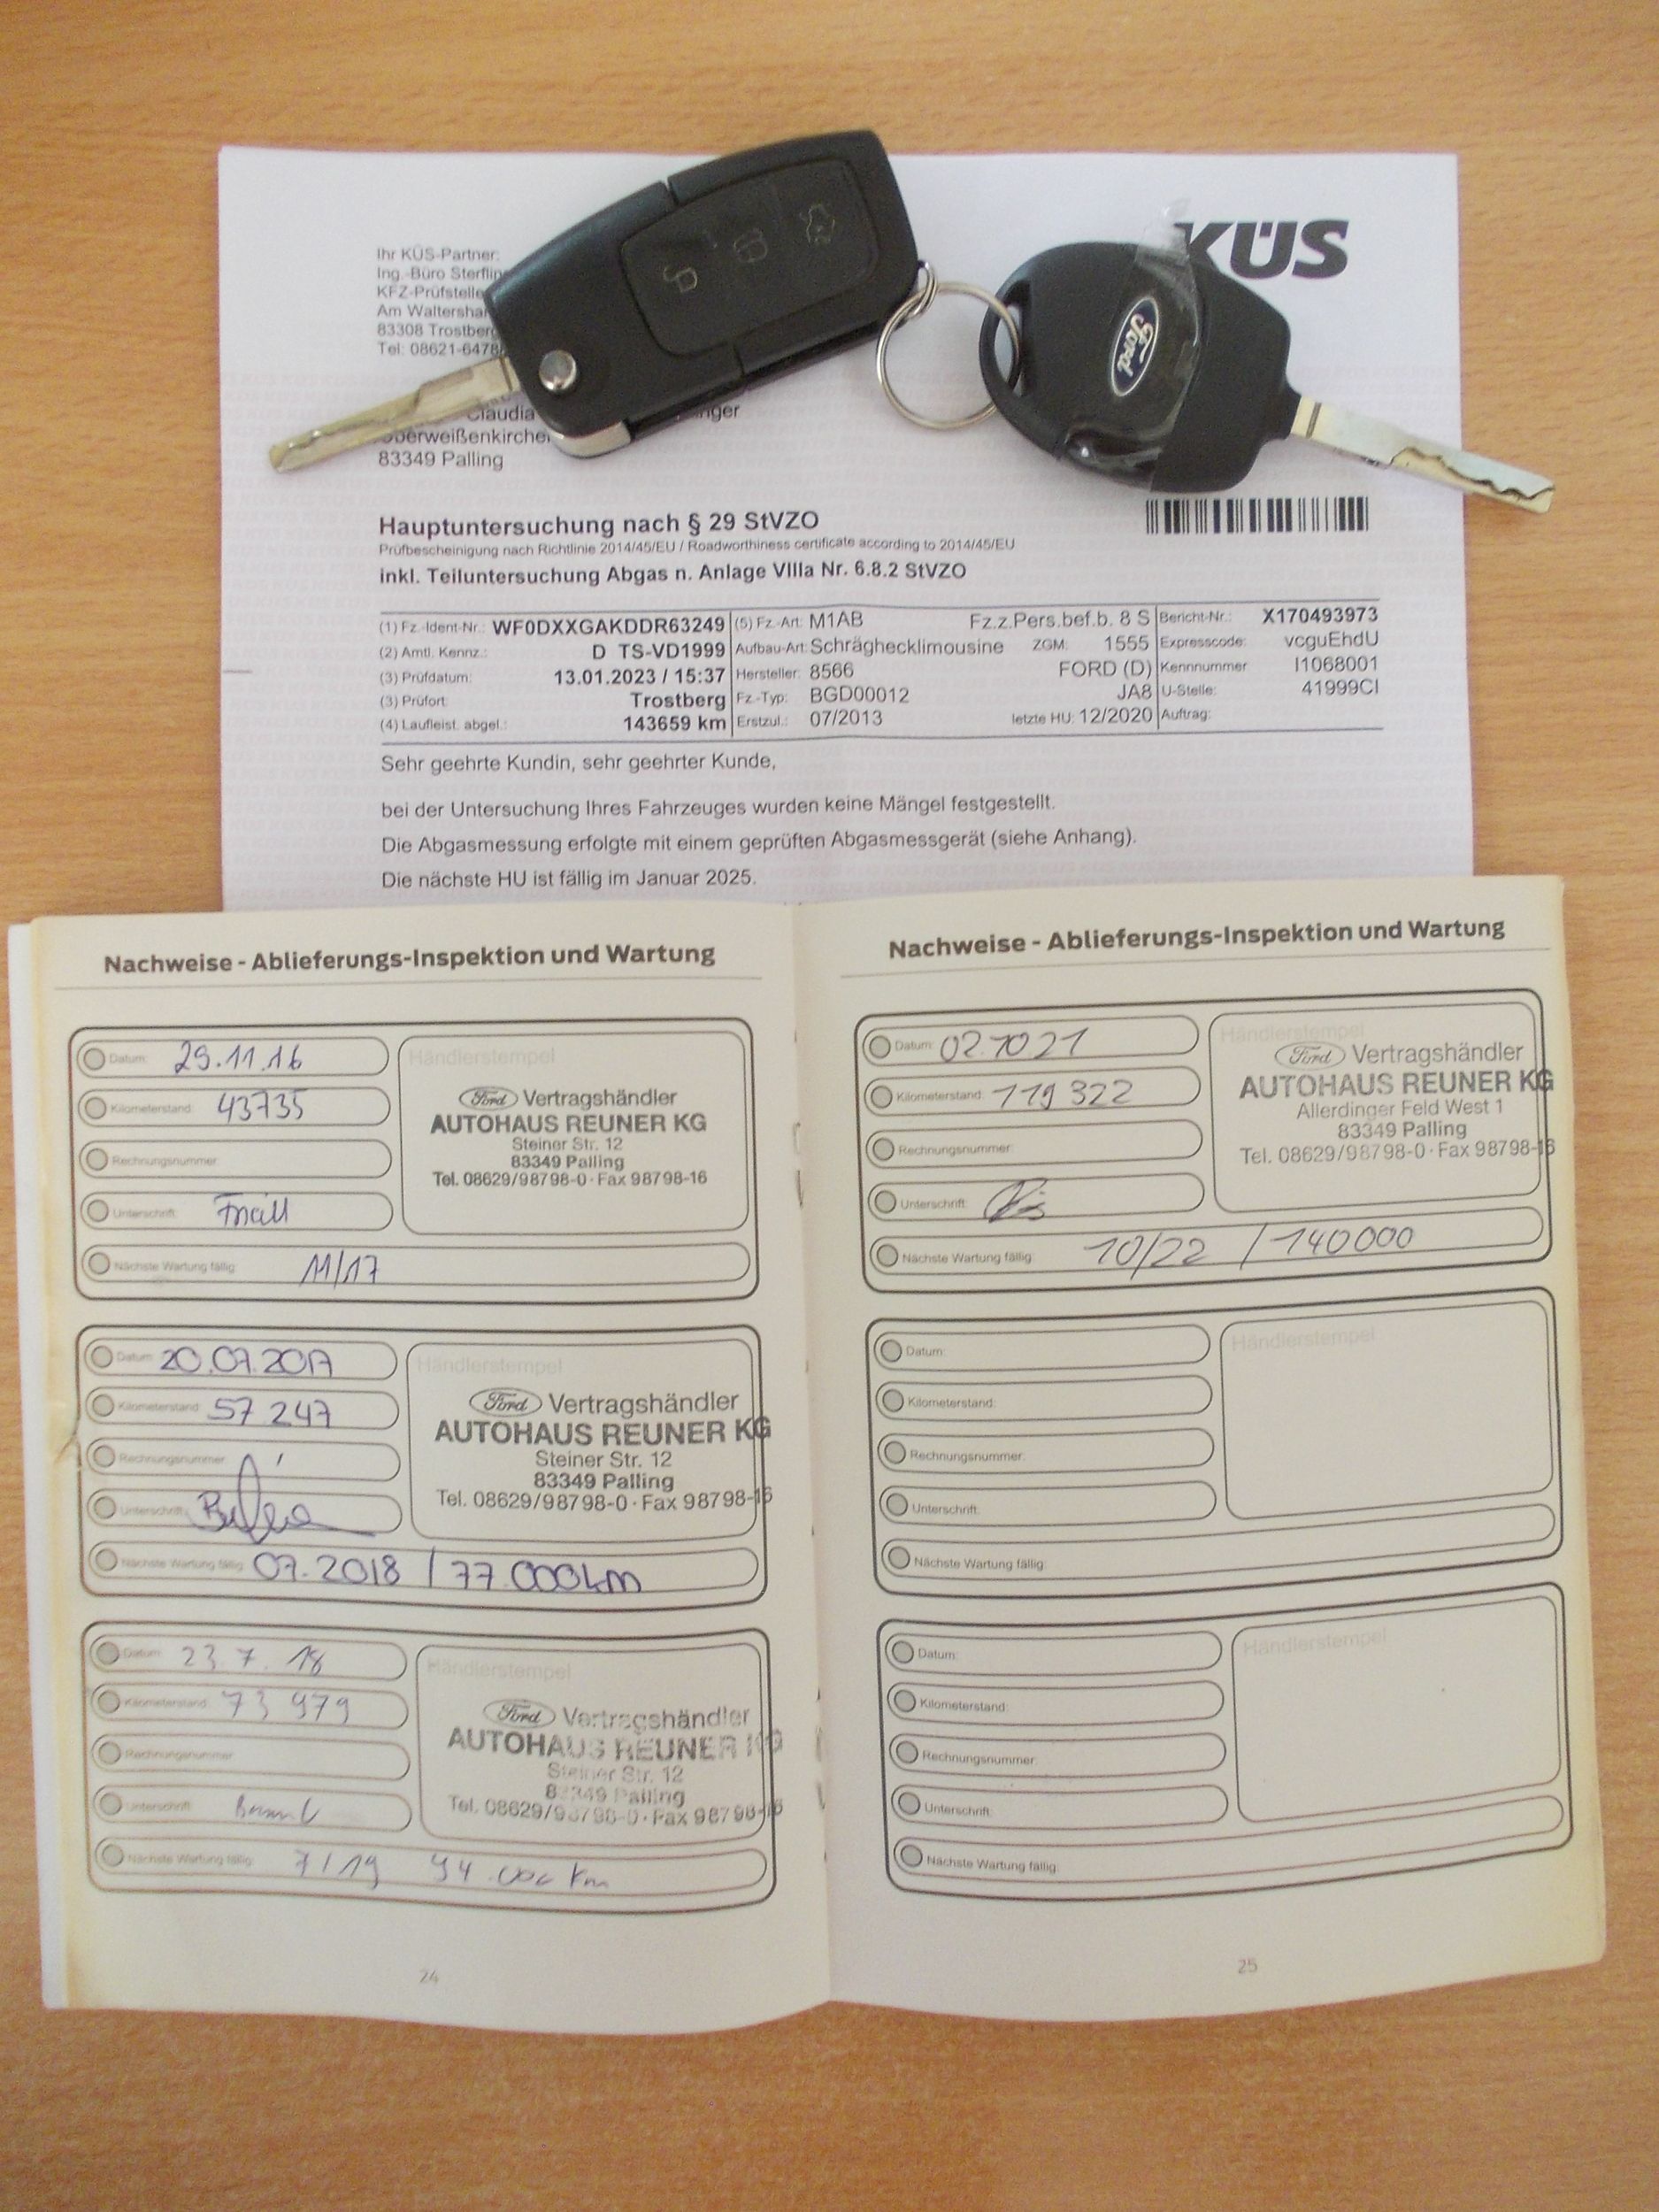 KÜS
Ihr KÜS-Partner:
Ing.-Büro
KFZ-Prüfstelle
Am
83308 Trostberg
Tel: 08621-6478
Claudia
83349 Palling
Hauptuntersuchung nach § 29 StVZO
Prüfbescheinigung nach Richtlinie 2014/45/EU / Roadworthiness certificate according to 2014/45/EU
inkl. Teiluntersuchung Abgas n. Anlage VIIIa Nr. 6.8.2 StVZO
(1) Fz.-Ident-Nr.: WF0DXXGAKDDR63249 (5) Fz.-Art: M1AB Fz.z.Pers.bef.b. 8 S Bericht-Nr.: X170493973
(2) Amtl. Kennz.: D TS-VD1999 Aufbau-Art: Schräghecklimousine ZGM: 1555 Expresscode: vcguEhdU
(3) Prüfdatum: 13.01.2023 / 15:37 Hersteller: 8566 FORD (D) Kennnummer I1068001
(3) Prüfort: Trostberg Fz.-Typ: BGD00012 JA8 U-Stelle: 41999CI
(4) Laufleist. abgel.: 143659 km Erstzul.: 07/2013 letzte HU: 12/2020 Auftrag:
Sehr geehrte Kundin, sehr geehrter Kunde,
bei der Untersuchung Ihres Fahrzeuges wurden keine Mängel festgestellt.
Die Abgasmessung erfolgte mit einem geprüften Abgasmessgerät (siehe Anhang).
Die nächste HU ist fällig im Januar 2025.
Ford
Nachweise - Ablieferungs-Inspektion und Wartung
Datum: 29.11.16
Kilometerstand: 43735
Rechnungsnummer:
Unterschrift:
Nächste Wartung fällig: 11/17
Händlerstempel
Ford Vertragshändler
AUTOHAUS REUNER KG
Steiner Str. 12
83349 Palling
Tel. 08629/98798-0 · Fax 98798-16
Datum: 20.07.2017
Kilometerstand: 57 247
Rechnungsnummer:
Unterschrift:
Nächste Wartung fällig: 07.2018 / 77.000km
Händlerstempel
Ford Vertragshändler
AUTOHAUS REUNER KG
Steiner Str. 12
83349 Palling
Tel. 08629/98798-0 · Fax 98798-16
Datum: 23.7.18
Kilometerstand: 73 979
Rechnungsnummer:
Unterschrift:
Nächste Wartung fällig: 7/19 94.000 km
Händlerstempel
Ford Vertragshändler
AUTOHAUS REUNER KG
Steiner Str. 12
83349 Palling
Tel. 08629/98798-0 · Fax 98798-16
24
Nachweise - Ablieferungs-Inspektion und Wartung
Datum: 02.10 21
Kilometerstand: 119 322
Rechnungsnummer:
Unterschrift:
Nächste Wartung fällig: 10/22 / 140000
Händlerstempel
Ford Vertragshändler
AUTOHAUS REUNER KG
Allerdinger Feld West 1
83349 Palling
Tel. 08629/98798-0 · Fax 98798-16
Datum:
Kilometerstand:
Rechnungsnummer:
Unterschrift:
Nächste Wartung fällig:
Händlerstempel
Datum:
Kilometerstand:
Rechnungsnummer:
Unterschrift:
Nächste Wartung fällig:
Händlerstempel
25